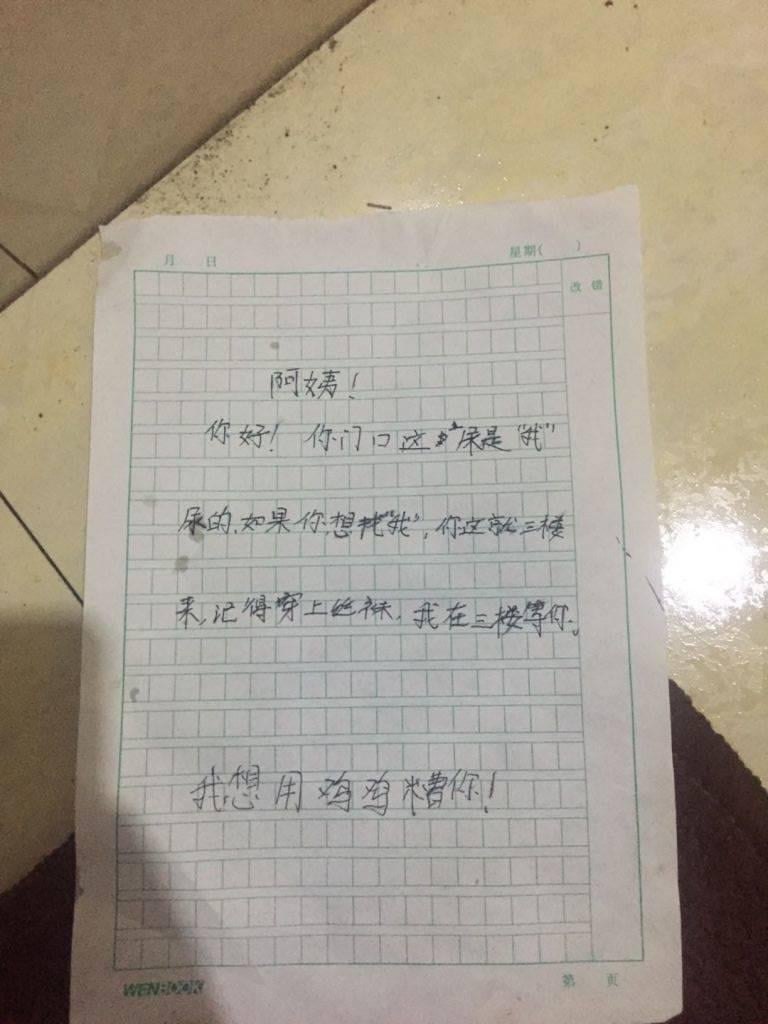 月 日 星期( )
改 错
阿姨!
你好! 你门口这尿是"我"
尿的.如果你想找"我",你这就三楼
来,记得穿上丝袜.我在三楼等你.
我想用鸡鸡糟你!
WENBOOK
第 页